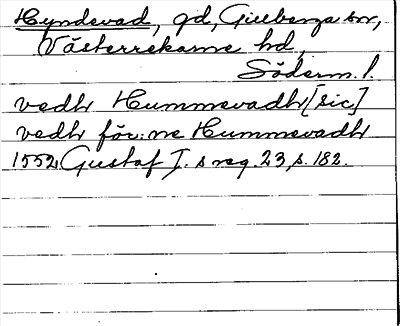 Hyndevad, gd, Gillberga sn,
Västerrekarne hd,
Söderm. l.
vedh Hummevadh [sic]
vedh för:ne Hummevadh
1552 Gustaf I.s reg. 23, s. 182.